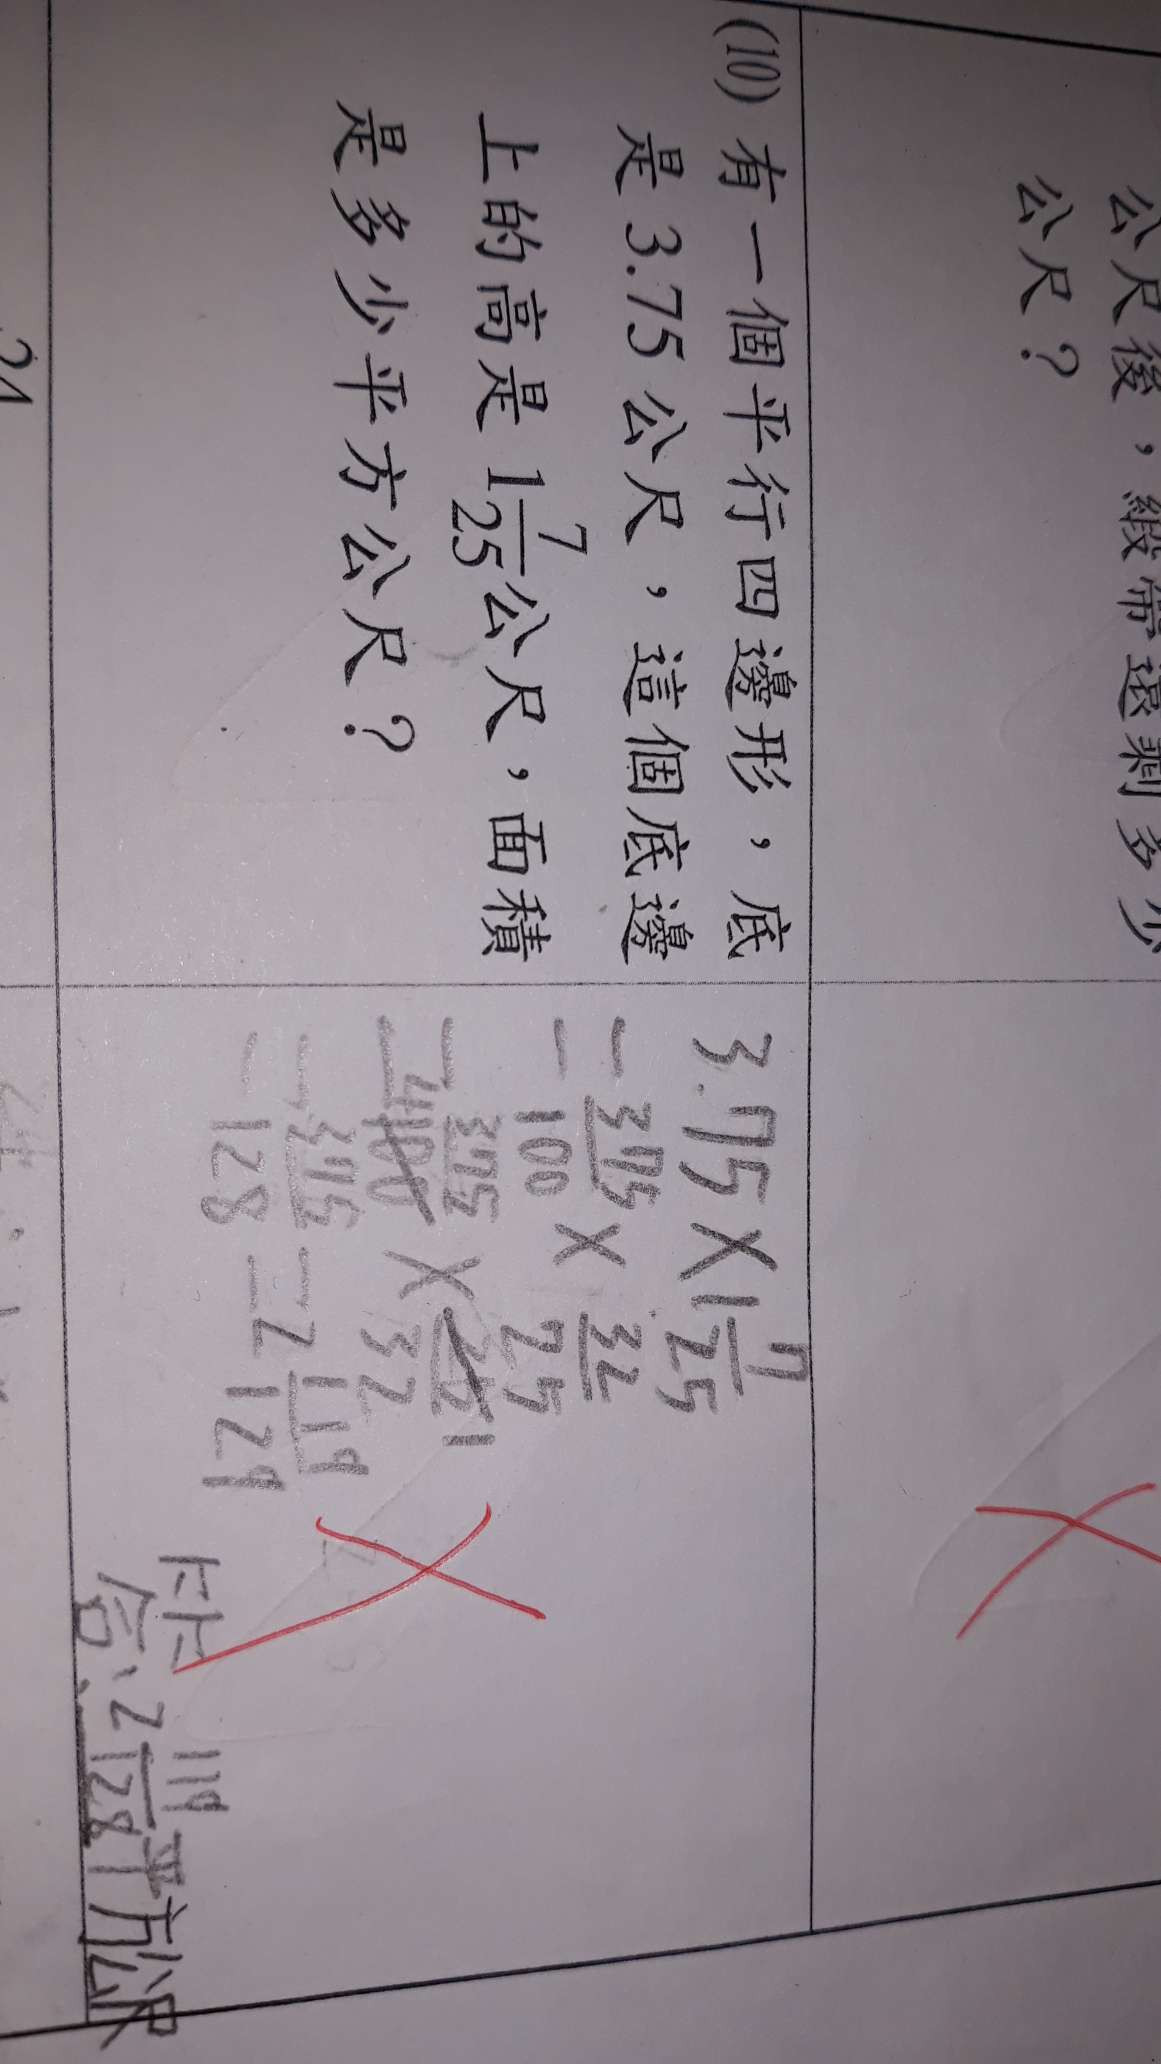 公尺後，緞帶還剩多少
公尺？
(10) 有一個平行四邊形，底
是 3.75 公尺，這個底邊
上的高是 1 7/25 公尺，面積
是多少平方公尺？
3.75 × 1 7/25
= 375/100 × 32/25
= 375/4100 × 251/32
= 375/128 = 2 119/129
答：2 119/128 平方公尺
24